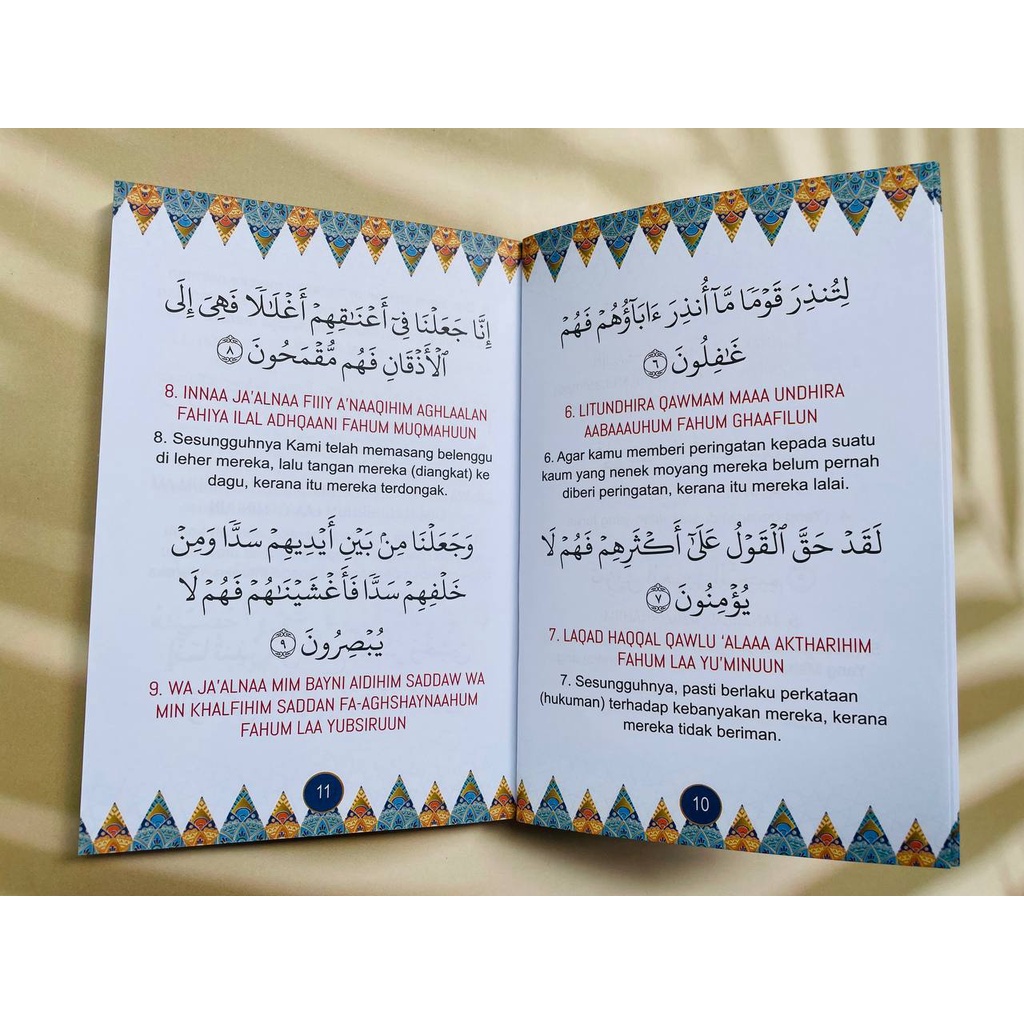 لِتُنذِرَ قَوۡمٗا مَّآ أُنذِرَ ءَابَآؤُهُمۡ فَهُمۡ
غَٰفِلُونَ ٦
6. LITUNDHIRA QAWMAM MAAA UNDHIRA
AABAAAUHUM FAHUM GHAAFILUN
6. Agar kamu memberi peringatan kepada suatu
kaum yang nenek moyang mereka belum pernah
diberi peringatan, kerana itu mereka lalai.
لَقَدۡ حَقَّ ٱلۡقَوۡلُ عَلَىٰٓ أَكۡثَرِهِمۡ فَهُمۡ لَا
يُؤۡمِنُونَ ٧
7. LAQAD HAQQAL QAWLU ‘ALAAA AKTHARIHIM
FAHUM LAA YU’MINUUN
7. Sesungguhnya, pasti berlaku perkataan
(hukuman) terhadap kebanyakan mereka, kerana
mereka tidak beriman.
10
إِنَّا جَعَلۡنَا فِيٓ أَعۡنَٰقِهِمۡ أَغۡلَٰلٗا فَهِيَ إِلَى
ٱلۡأَذۡقَانِ فَهُم مُّقۡمَحُونَ ٨
8. INNAA JA’ALNAA FIIIY A’NAAQIHIM AGHLAALAN
FAHIYA ILAL ADHQAANI FAHUM MUQMAHUUN
8. Sesungguhnya Kami telah memasang belenggu
di leher mereka, lalu tangan mereka (diangkat) ke
dagu, kerana itu mereka terdongak.
وَجَعَلۡنَا مِنۢ بَيۡنِ أَيۡدِيهِمۡ سَدّٗا وَمِنۡ
خَلۡفِهِمۡ سَدّٗا فَأَغۡشَيۡنَٰهُمۡ فَهُمۡ لَا
يُبۡصِرُونَ ٩
9. WA JA’ALNAA MIM BAYNI AIDIHIM SADDAW WA
MIN KHALFIHIM SADDAN FA-AGHSHAYNAAHUM
FAHUM LAA YUBSIRUUN
11